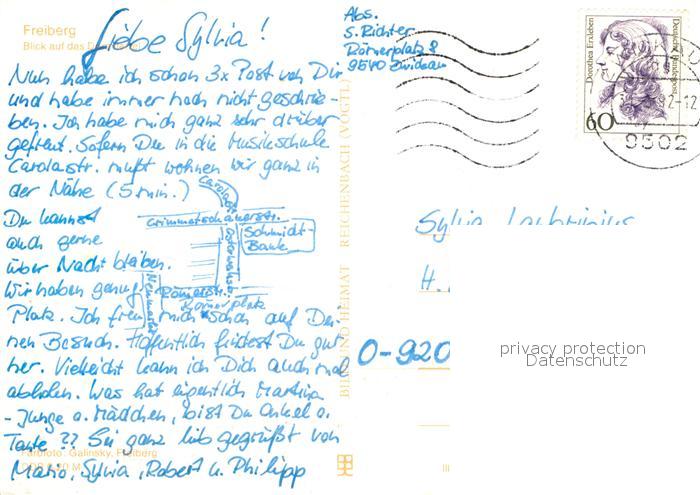 Freiberg
Blick auf das
Liebe Sylvia!
Nun habe ich schon 3x Post von Dir
und habe immer noch nicht geschrie-
ben. Ich habe mich ganz sehr drüber
gefreut. Sofern Du in die Musikschule
Carolastr. mußt wohnen wir ganz in
der Nähe (5 min.)
Du kannst
auch gerne
über Nacht bleiben.
Wir haben genug
Platz. Ich freu mich schon auf Dei-
nen Besuch. Hoffentlich findest Du gut
her. Vielleicht kann ich Dich auch mal
abholen. Was hat eigentlich Martina
- Junge o. Mädchen, bist Du Onkel o.
Tante?? Sei ganz lieb gegrüßt von
Mario, Sylvia, Robert u. Philipp
Carolastr.
Crimmitschauerstr.
Schmidt-
Bank
Römerstr.
Römerplatz
Farbfoto: Galinsky, Freiberg
BILD UND HEIMAT REICHENBACH (VOGTL)
Abs.
S. Richter
Römerplatz 2
9540 Zwickau
Dorothea Erxleben
Deutsche Bundespost
60
9502
Sylvia
H.
O-920
privacy protection
Datenschutz